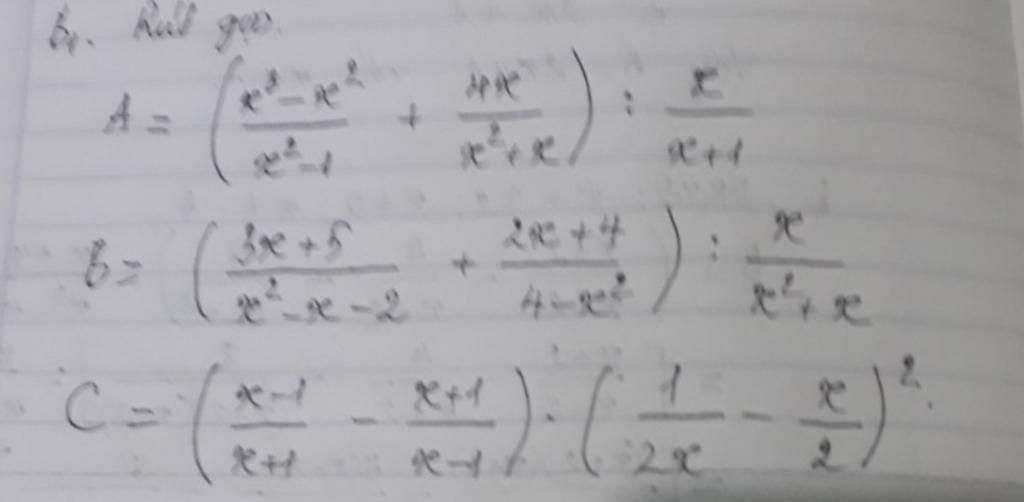 B1. Rút gọn.
A = ( (x³ - x²)/(x² - 1) + 4x/(x² + x) ) : x/(x+1)
B = ( (3x + 5)/(x² - x - 2) + (2x + 4)/(4 - x²) ) : x/(x² + x)
C = ( (x-1)/(x+1) - (x+1)/(x-1) ) · ( 1/(2x) - x/2 )².